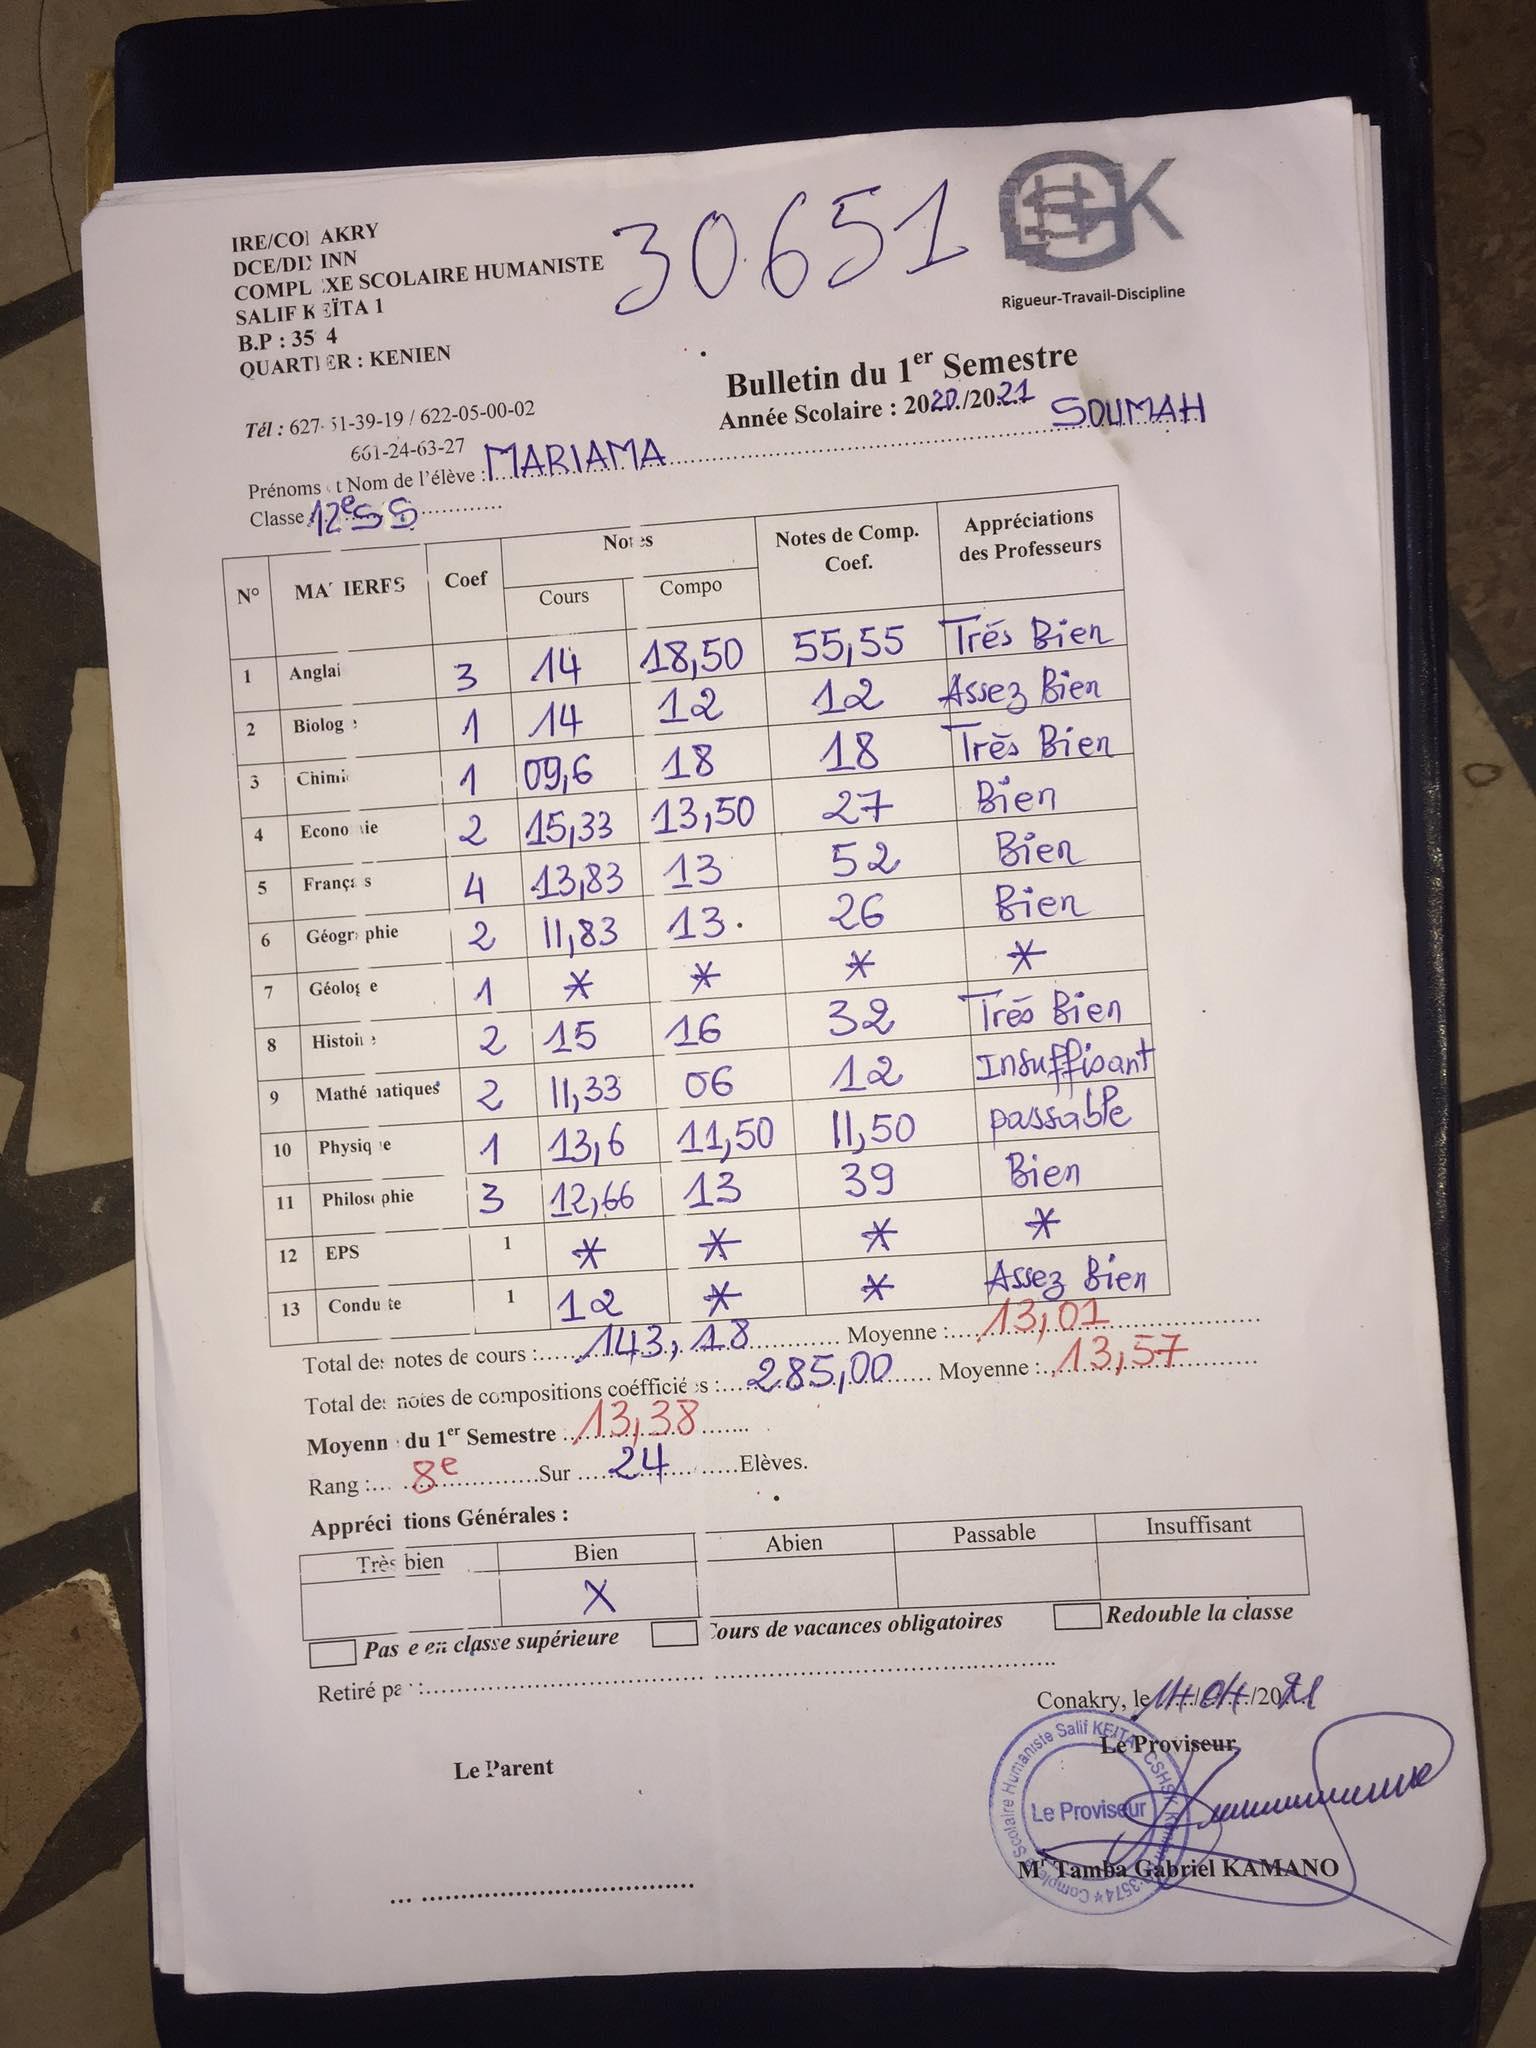 IRE/CO AKRY
DCE/DI INN
COMPL XE SCOLAIRE HUMANISTE
SALIF KEÏTA 1
B.P : 35 4
QUARTIER : KENIEN
30651
Rigueur-Travail-Discipline
Bulletin du 1er Semestre
Année Scolaire : 2020/2021
Tél : 627-51-39-19 / 622-05-00-02
661-24-63-27
Prénoms et Nom de l'élève : MARIAMA SOUMAH
Classe 12e SS
N° MATIERES Coef Notes Notes de Comp. Coef. Appréciations des Professeurs
Cours Compo
1 Anglai 3 14 18,50 55,55 Très Bien
2 Biolog e 1 14 12 12 Assez Bien
3 Chimi 1 09,6 18 18 Très Bien
4 Econo ie 2 15,33 13,50 27 Bien
5 França s 4 13,83 13 52 Bien
6 Géogr phie 2 11,83 13. 26 Bien
7 Géolog e 1 * * * *
8 Histoire 2 15 16 32 Très Bien
9 Mathé atiques 2 11,33 06 12 Insuffisant
10 Physiq e 1 13,6 11,50 11,50 passable
11 Philos phie 3 12,66 13 39 Bien
12 EPS 1 * * * *
13 Conduite 1 12 * * Assez Bien
Total des notes de cours : 143,18 Moyenne : 13,01
Total des notes de compositions coéfficiées : 285,00 Moyenne : 13,57
Moyenn du 1er Semestre : 13,38
Rang : 8e Sur 24 Elèves.
Appréciations Générales :
Très bien Bien Abien Passable Insuffisant
X
Pas e en classe supérieure Cours de vacances obligatoires Redouble la classe
Retiré pa :
Conakry, le 14/04/2021
Le Proviseur
Le Parent
Complexe Scolaire Humaniste Salif KEITA
Le Proviseur
Mr Tamba Gabriel KAMANO